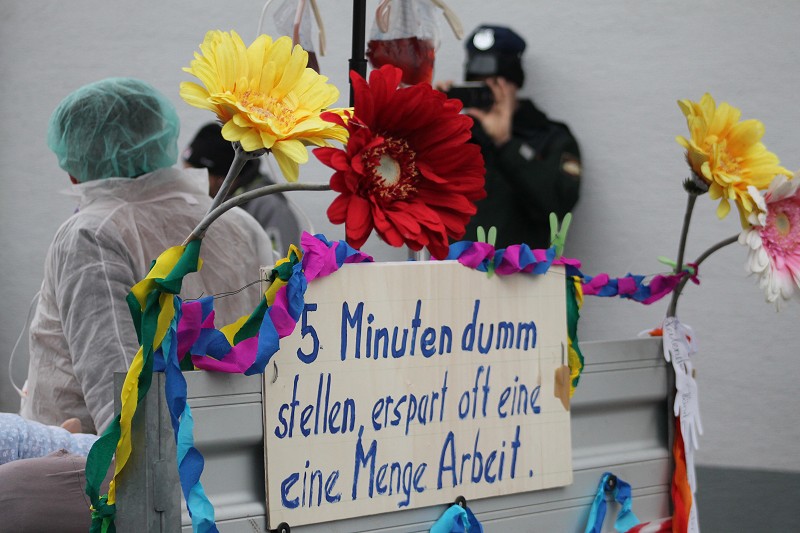 5 Minuten dumm
stellen, erspart oft eine
eine Menge Arbeit.